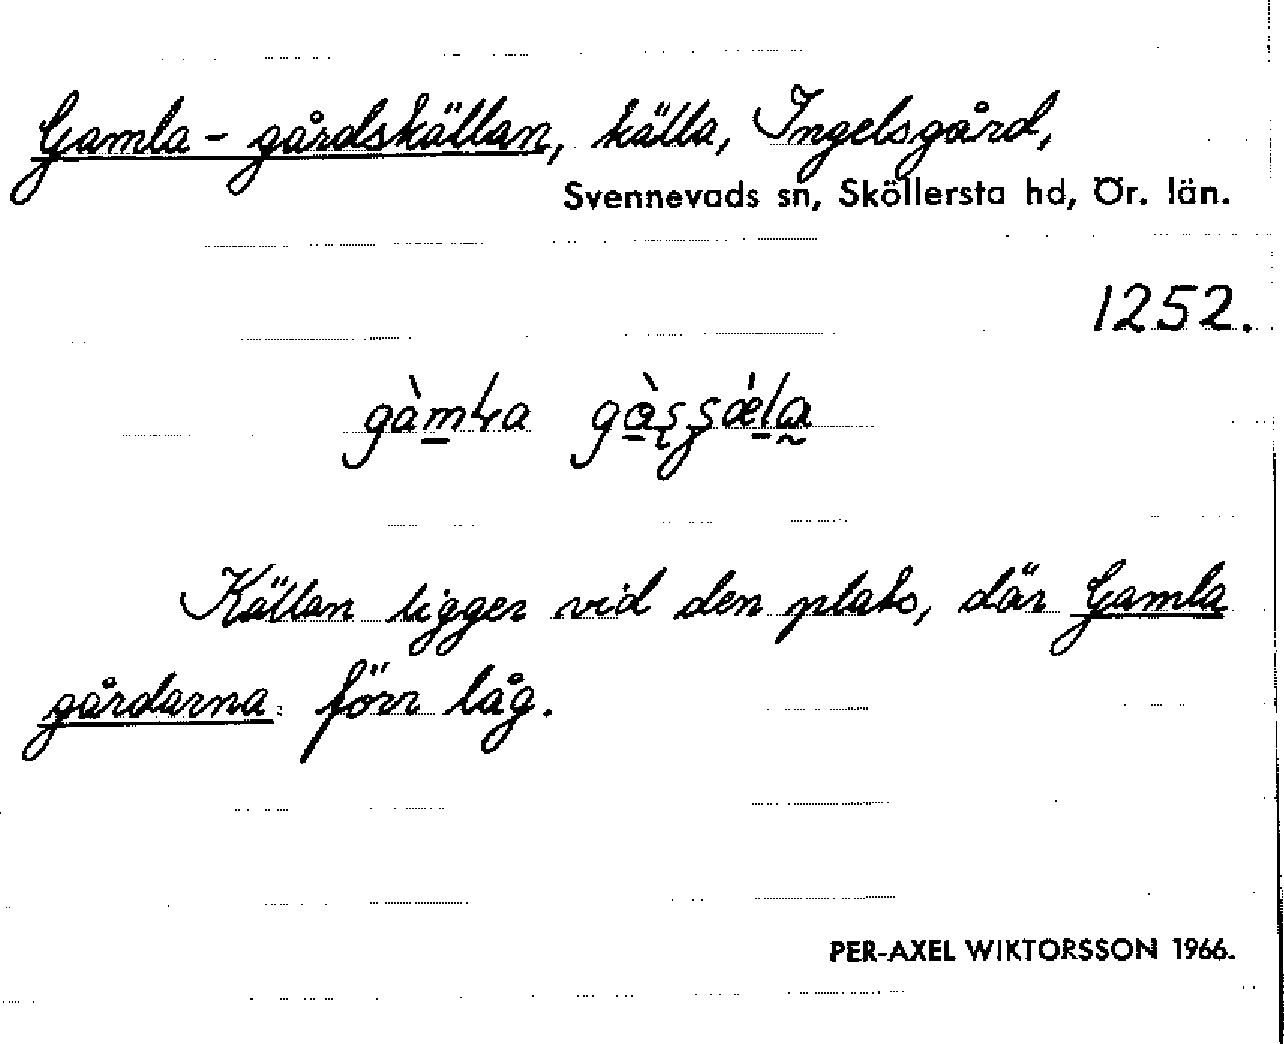 Gamla-gårdskällan, källa, Ingelsgård,
Svennevads sn, Sköllersta hd, Ör. län.
1252.
Källan ligger vid den plats, där Gamla
gårdarna förr låg.
PER-AXEL WIKTORSSON 1966.